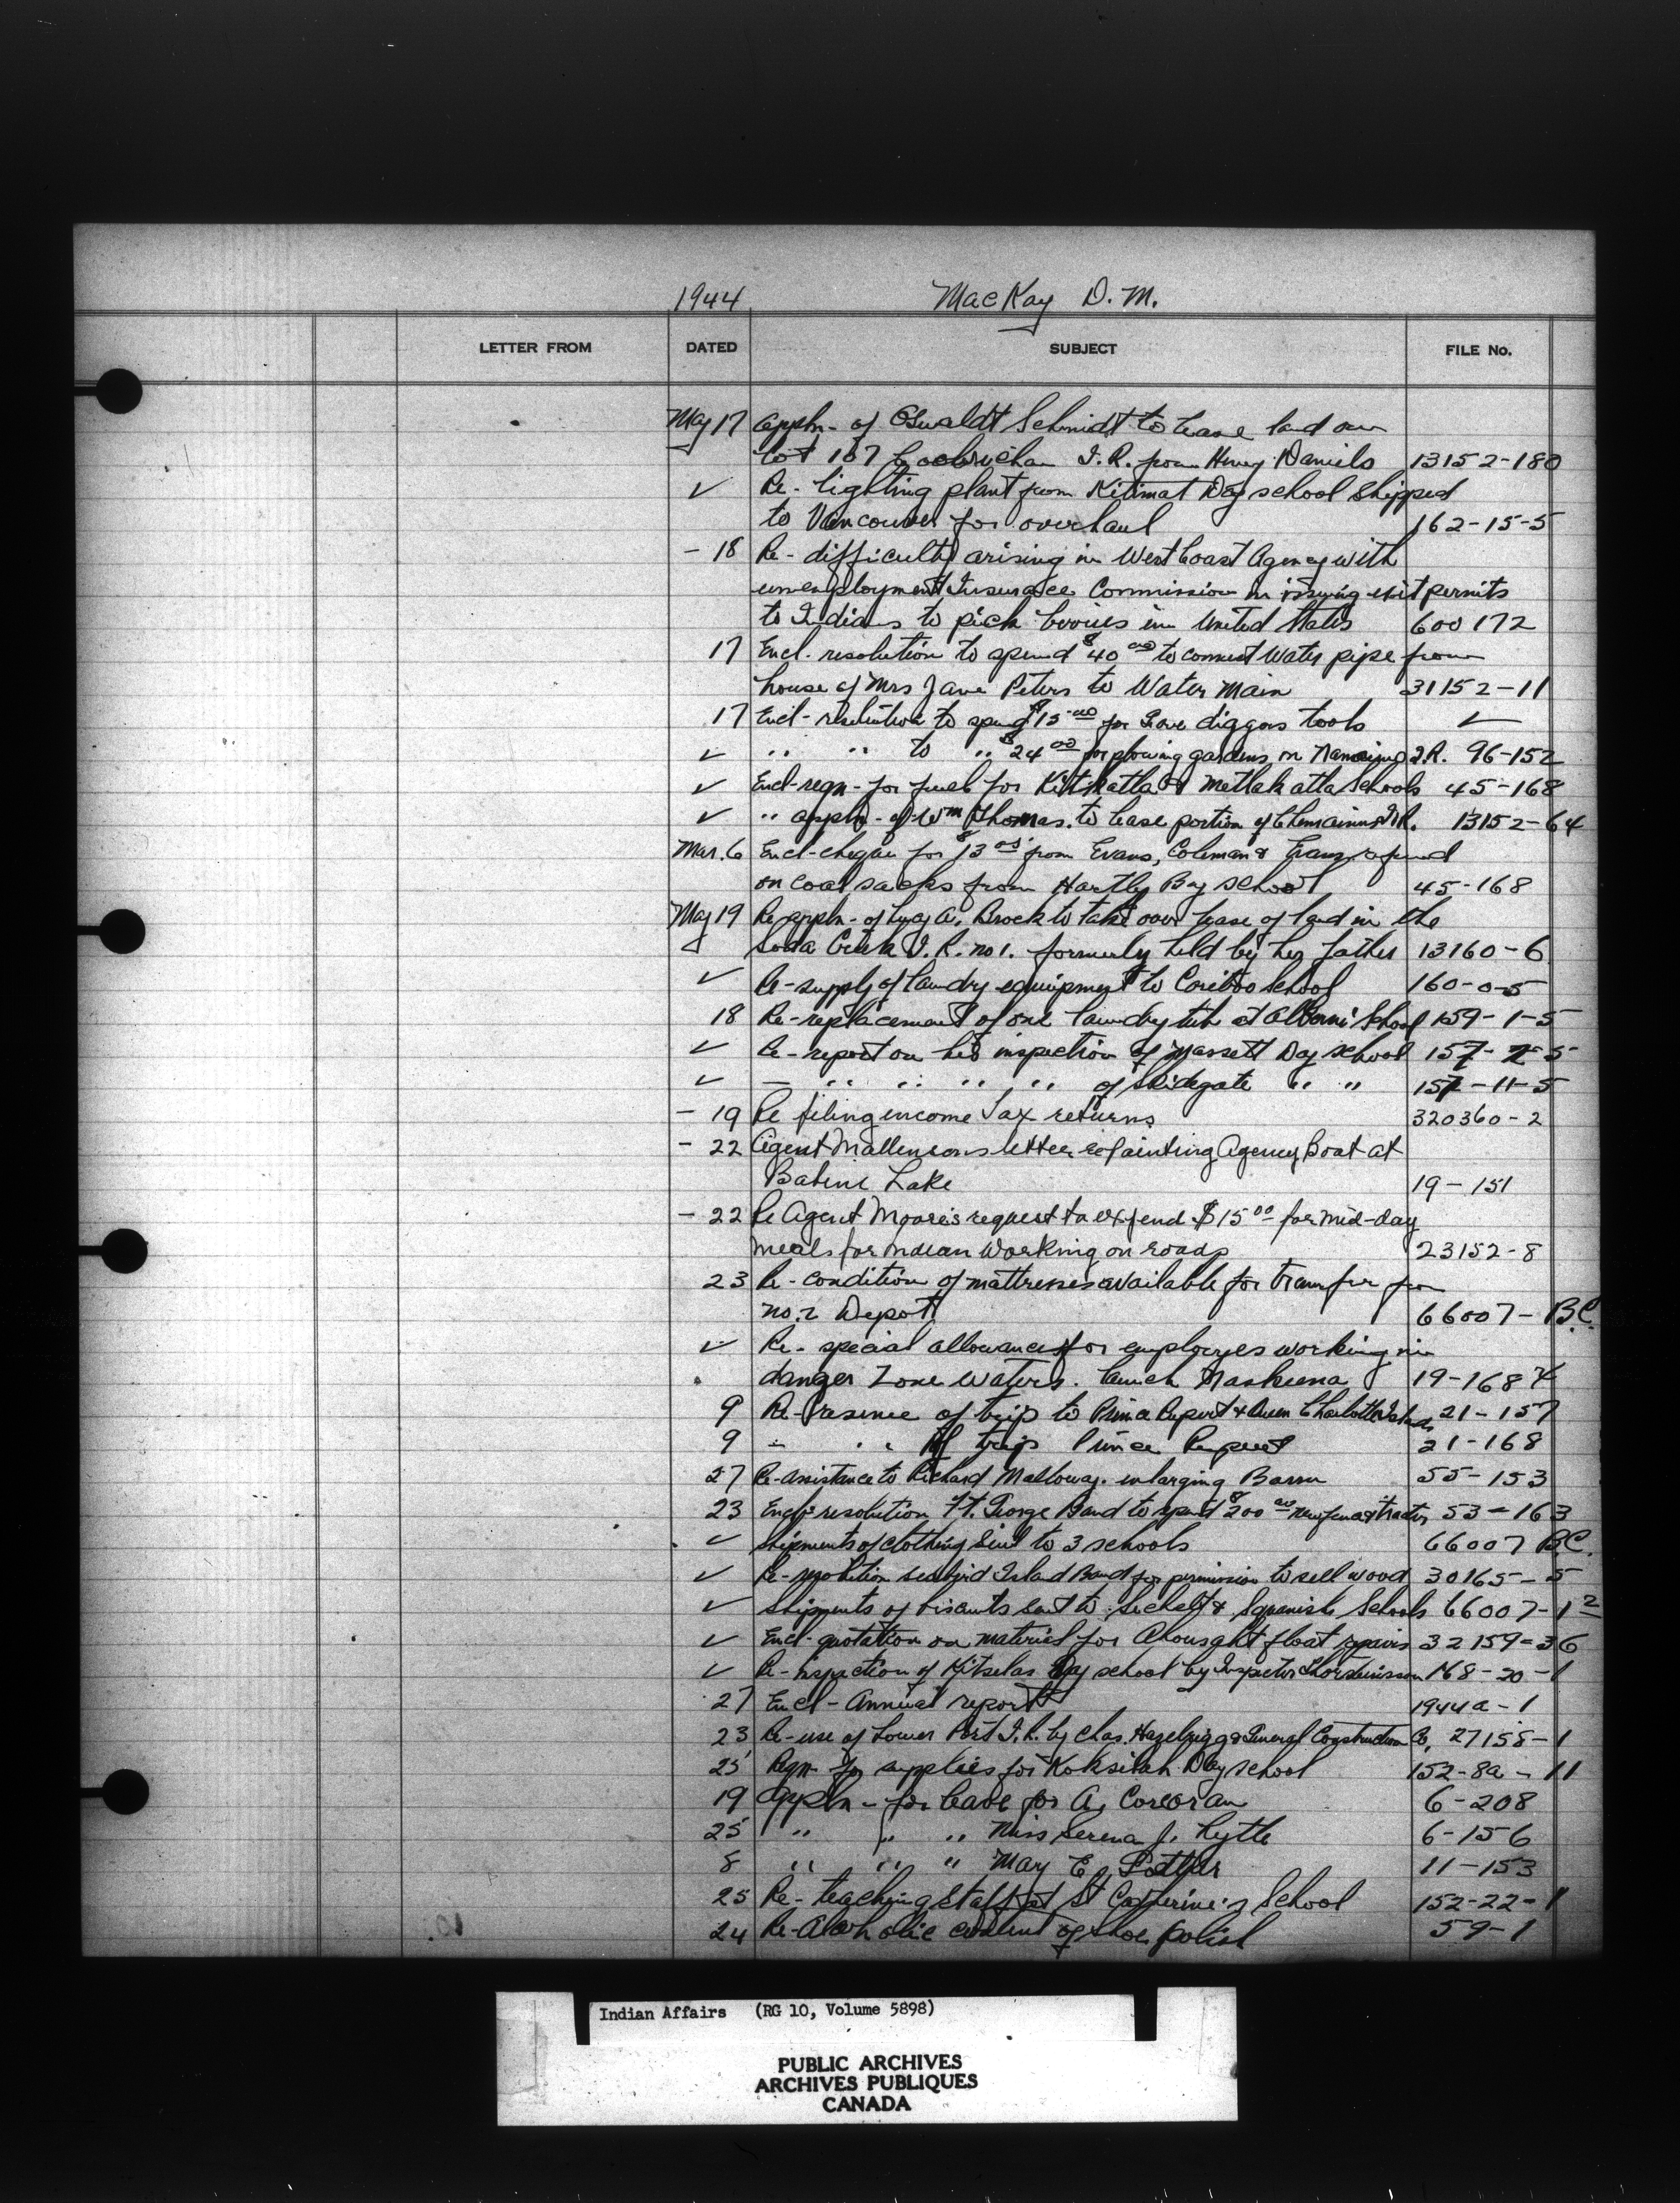 1944 MacKay D. M.
LETTER FROM DATED SUBJECT FILE No.
May 17 Appln- of Oswaldt Schmidt to lease land on
Lot 187 Cowichan I.R. from Henry Daniels 13152-180
✓ Re- lighting plant from Kitimat Day school shipped
to Vancouver for overhaul 162-15-5
- 18 Re- difficulty arising in West Coast Agency with
unemployment Insurance Commission in issuing exit permits
to Indians to pick berries in United States 600172
17 Encl. resolution to spend $40 00 to connect water pipe from
house of Mrs Jane Peters to Water Main 31152-11
17 Encl- resolution to spend $15 00 for Grave diggers tools ✓
✓ " " to " $24 00 for plowing gardens on Nanaimo I.R. 96-152
✓ Encl-reqn- for fuel for Kitkatla & Metlakatla Schools 45-168
✓ " appln- of Wm Thomas. to lease portion of Chemainus I.R. 13152-64
Mar. 6 Encl-cheque for $13 from Evans, Coleman & Evans refund
on coal sacks from Hartley Bay school 45-168
May 19 Re appln- of Lucy A. Brock to take over lease of land in the
Soda Creek I.R. no 1. formerly held by her father 13160-6
✓ Re-supply of laundry equipment to Cariboo School 160-0-5
18 Re-replacement of one laundry tub at Alberni School 159-1-5
✓ Re-report on his inspection of Massett Day school 157-2-5
✓ — " " " " of Skidegate " " 157-11-5
- 19 Re filing income Tax returns 320360-2
- 22 Agent Mallinson's letter re painting Agency Boat at
Babine Lake 19-151
- 22 Re Agent Moore's request to expend $15 00 for mid-day
meals for Indian working on roads 23152-8
23 Re- condition of mattresses available for transfer from
no. 2 Depot 66007-B.C.
✓ Re- special allowances for employees working in
danger Zone waters. launch Naskeena 19-168
9 Re- of trip to Prince Rupert & Queen Charlotte Islands 21-157
9 - " of trip Prince Rupert 21-168
27 Re-assistance to Richard Malloway. enlarging Barn 55-153
23 Encl- resolution Ft. George Band to spend $200 00 53-163
✓ Shipments of clothing sent to 3 schools 66007 B.C.
✓ Re-resolution Seabird Island Band for permission to sell wood 30165-5
✓ Shipments of biscuits sent to Sechelt & Squamish Schools 66007-1 2
✓ Encl- quotation on material for Ahousaht float repairs 32159-36
✓ Re-inspection of Kitselas Day school by Inspector Thorsteinsson 168-20-1
27 Encl- Annual report 1944a-1
23 Re-use of Lower Post I.R. by Chas. Hazelrigg & General Construction Co, 27158-1
25 Reqn for supplies for Koksilah Day school 152-8a-11
19 Appln- for leave for A. Corcoran 6-208
25 " " " Miss Serena J. Lytle 6-156
8 " " " May E. 11-153
25 Re- teaching staff at St Catherine's School 152-22-1
24 Re-Alcoholic content of shoe polish 59-1
Indian Affairs (RG 10, Volume 5898)
PUBLIC ARCHIVES
ARCHIVES PUBLIQUES
CANADA